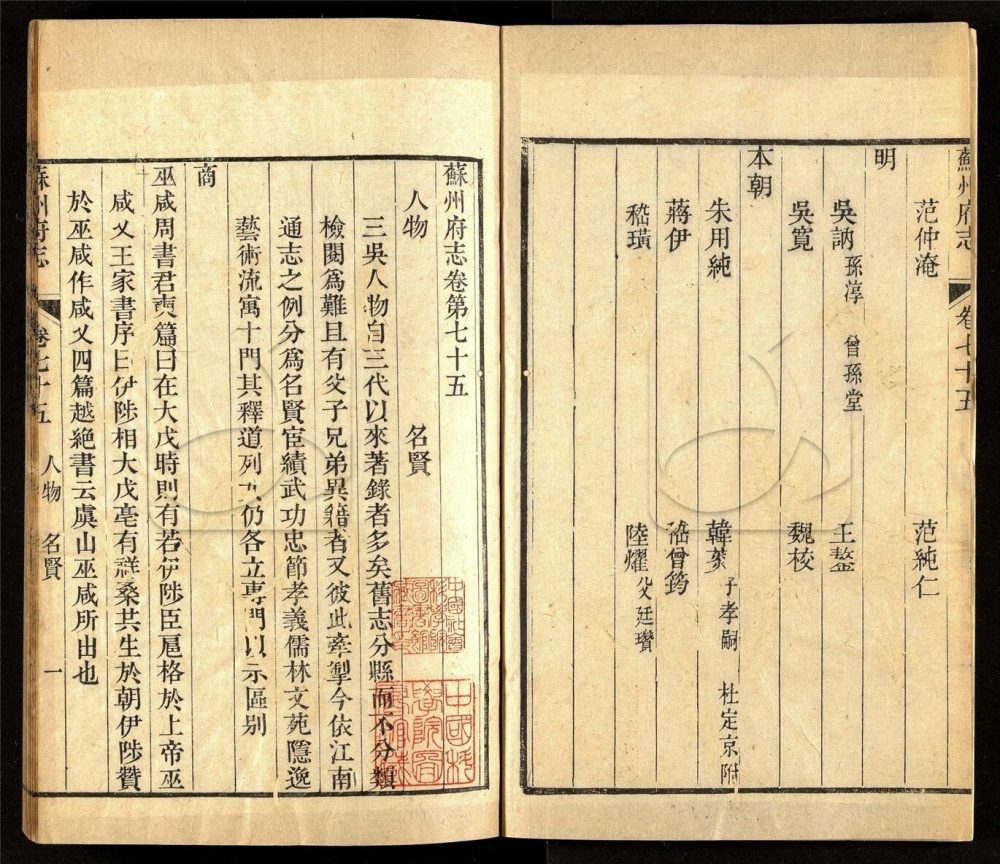 蘇州府志　卷七十五
范仲淹　范純仁
明
吳訥 孫淳 曾孫堂　王鏊
吳寬　魏校
本朝
朱用純　韓菼 子孝嗣 杜定京附
蔣伊　嵇曾筠
嵇璜　陸燿 父廷瓚
蘇州府志卷第七十五
人物　名賢
三吳人物自三代以來著錄者多矣舊志分縣而不分類
檢閱爲難且有父子兄弟異籍者又彼此牽掣今依江南
通志之例分爲名賢宦績武功忠節孝義儒林文苑隱逸
藝術流寓十門其釋道列女仍各立專門以示區別
商
巫咸周書君奭篇曰在大戊時則有若伊陟臣扈格於上帝巫
咸乂王家書序曰伊陟相大戊亳有祥桑共生於朝伊陟贊
於巫咸作咸乂四篇越絕書云虞山巫咸所出也
蘇州府志　卷七十五　人物　名賢　一